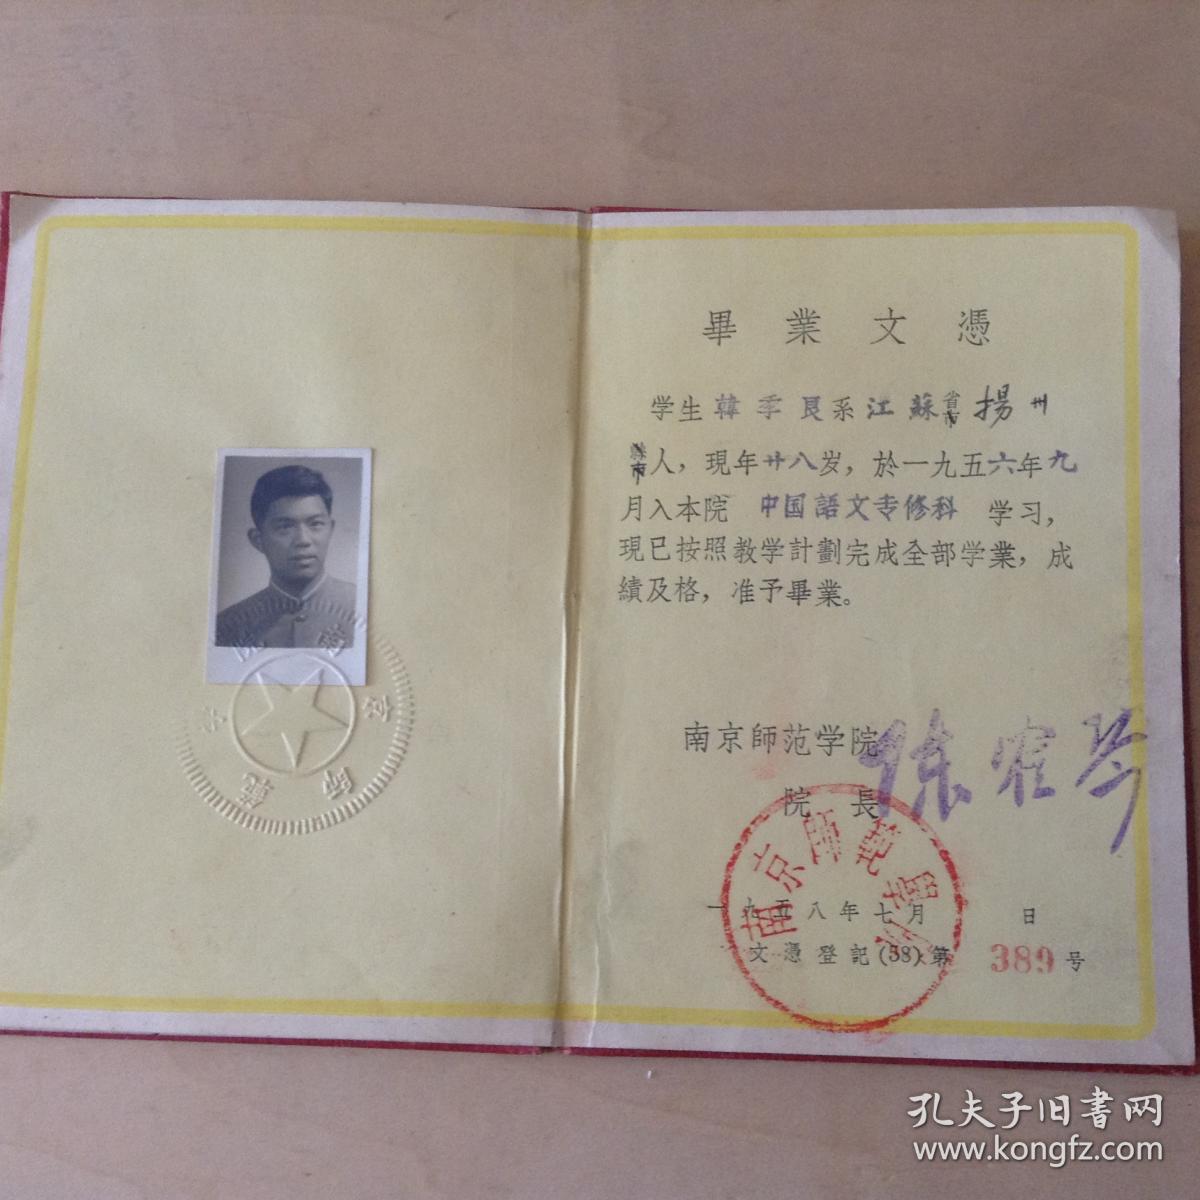 畢業文憑
学生韓季良系江蘇省市揚州
縣市人，現年廿八岁，於一九五六年九
月入本院 中国語文专修科 学习，
現已按照教学計劃完成全部学業，成
績及格，准予畢業。
南京師范学院
院長
陈鹤琴
南京師範學院
一九五八年七月 日
文憑登記(58)第389号
南京師範学院
孔夫子旧書网
www.kongfz.com